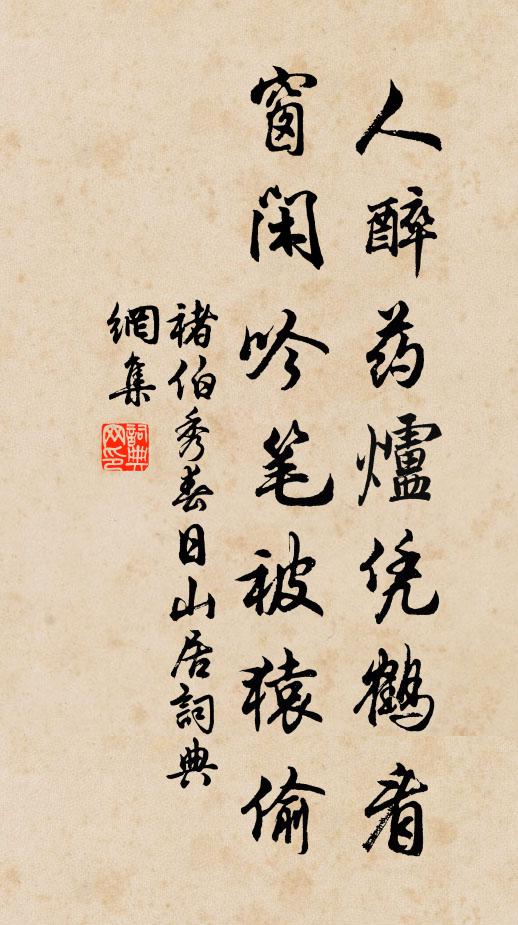 人醉药爐凭鹤看
窗闲吟笔被猿偷
褚伯秀春日山居詞典
網集
詞典
网印